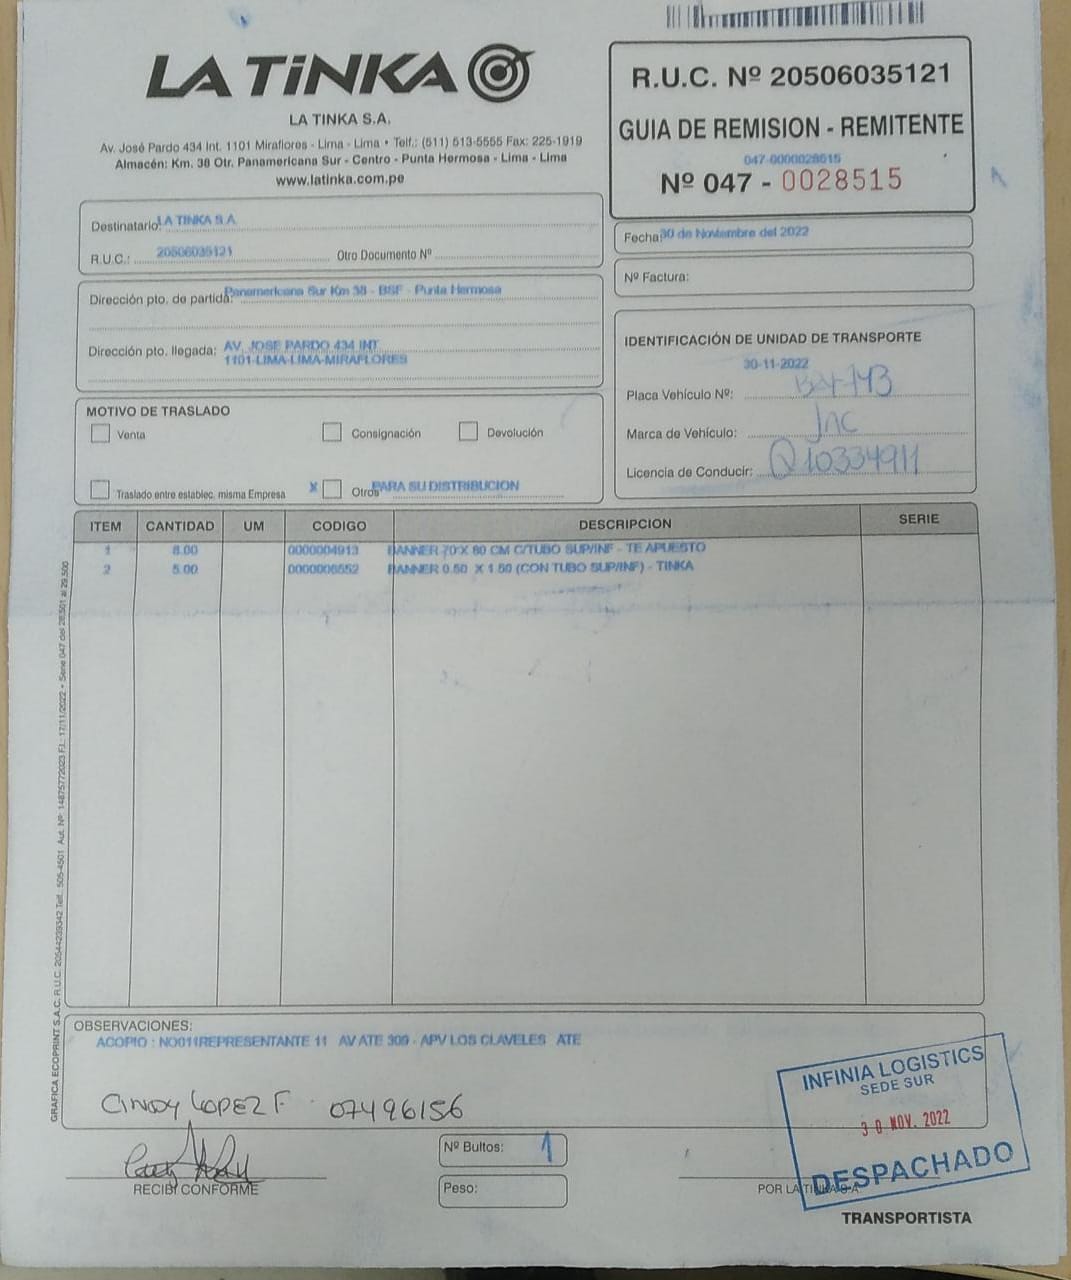 LA TiNKA
LA TINKA S.A.
Av. José Pardo 434 Int. 1101 Miraflores - Lima - Lima • Telf.: (511) 513-5555 Fax: 225-1919
Almacén: Km. 38 Otr. Panamericana Sur - Centro - Punta Hermosa - Lima - Lima
www.latinka.com.pe
R.U.C. Nº 20506035121
GUIA DE REMISION - REMITENTE
047-0000028515
Nº 047 - 0028515
Destinatario: LA TINKA S.A.
R.U.C.: 20506035121 Otro Documento Nº
Fecha: 30 de Noviembre del 2022
Nº Factura:
Dirección pto. de partida: Panamericana Sur Km 38 - BSF - Punta Hermosa
Dirección pto. llegada: AV. JOSE PARDO 434 INT
1101-LIMA-LIMA-MIRAFLORES
IDENTIFICACIÓN DE UNIDAD DE TRANSPORTE
30-11-2022
Placa Vehículo Nº:
Marca de Vehículo: Jnc
Licencia de Conducir: Q10334911
MOTIVO DE TRASLADO
Venta Consignación Devolución
Traslado entre establec. misma Empresa X Otros PARA SU DISTRIBUCION
ITEM CANTIDAD UM CODIGO DESCRIPCION SERIE
1 8.00 0000004913 BANNER 70 X 80 CM C/TUBO SUP/INF - TE APUESTO
2 5.00 0000006552 BANNER 0.50 X 1.50 (CON TUBO SUP/INF) - TINKA
GRAFICA ECOPRINT S.A.C. R.U.C. 20544239342 Telf. 505-4501 Aut. Nº 14875772023 F.I.: 17/11/2022 • Serie 047 del 28,501 al 29,500
OBSERVACIONES:
ACOPIO : NO011REPRESENTANTE 11 AV ATE 309 - APV LOS CLAVELES ATE
CINDY LOPEZ F 07496156
INFINIA LOGISTICS
SEDE SUR
30 NOV. 2022
DESPACHADO
Nº Bultos: 1
Peso:
RECIBI CONFORME
POR LA TINKA S.A.
TRANSPORTISTA